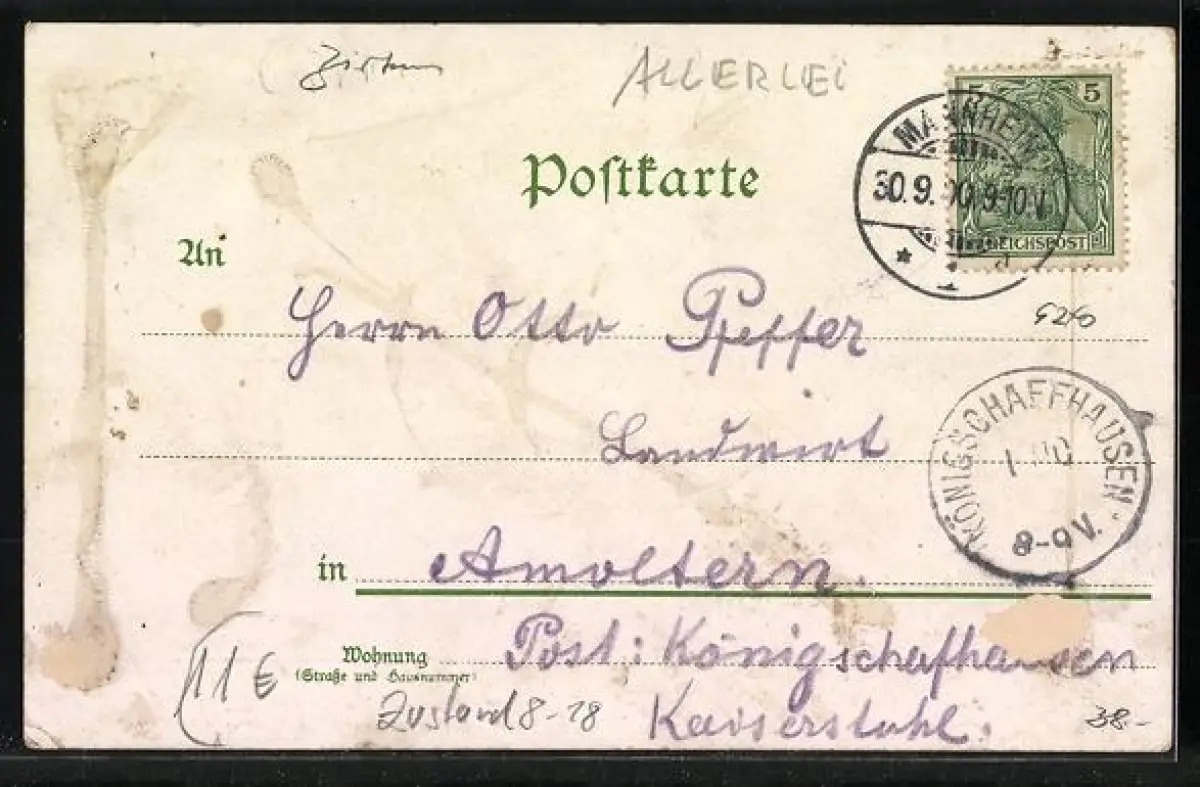 ALLERLEI
5 5
MANNHEIM
30.9.00.9-10V.
1 a
REICHSPOST
Poſtkarte
An
Herrn Otto Pfeffer
Landwirt
KÖNIGSCHAFFHAUSEN
8-9V.
in Amoltern.
Wohnung Post: Königschafhausen
(Straße und Hausnummer)
Kaiserstuhl.
11 €
Zustand 8-18
38.-